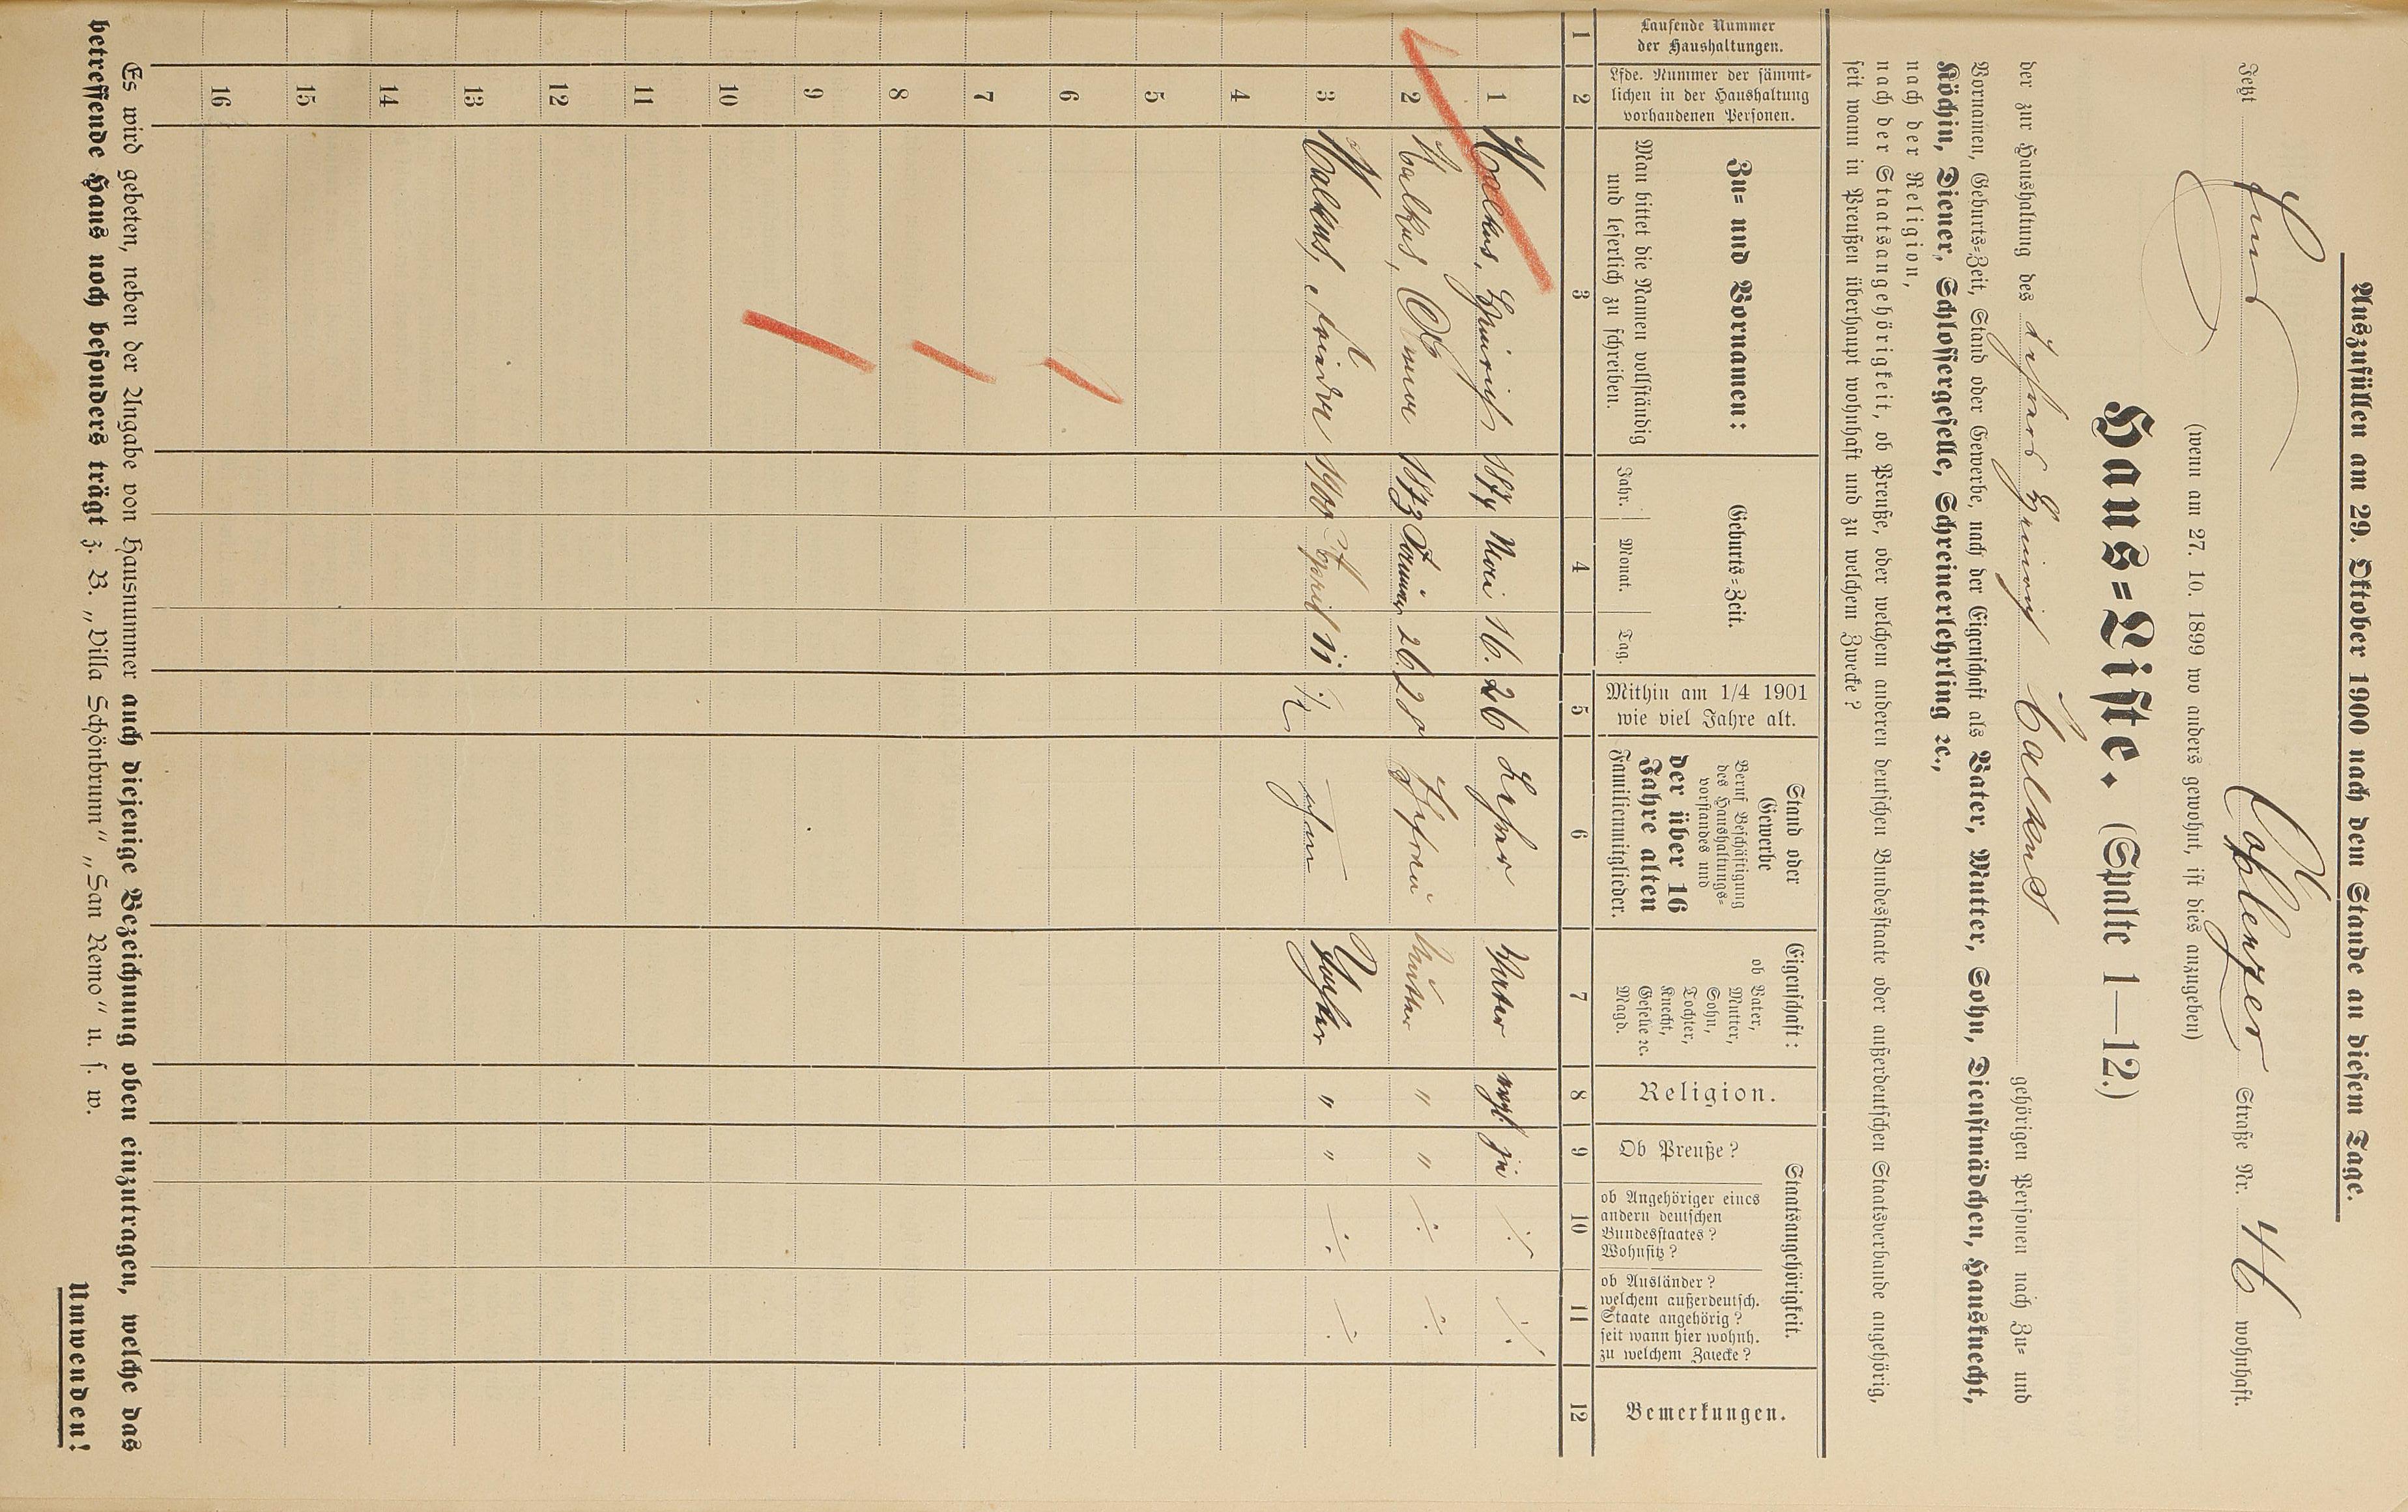 Auszufüllen am 29. Oktober 1900 nach dem Stande an diesem Tage.
Jetzt Coblenzer Straße Nr. 46 wohnhaft.
(wenn am 27. 10. 1899 wo anders gewohnt, ist dies anzugeben)
Haus=Liste. (Spalte 1—12.)
der zur Haushaltung des Lehrers Heinrich Calkus gehörigen Personen nach Zu= und
Vornamen, Geburts=Zeit, Stand oder Gewerbe, nach der Eigenschaft als Vater, Mutter, Sohn, Dienstmädchen, Hausknecht,
Köchin, Diener, Schlossergeselle, Schreinerlehrling ꝛc.,
nach der Religion,
nach der Staatsangehörigkeit, ob Preuße, oder welchem anderen deutschen Bundesstaate oder außerdeutschen Staatsverbande angehörig,
seit wann in Preußen überhaupt wohnhaft und zu welchem Zwecke?
Laufende Nummer
der Haushaltungen.
Lfde. Nummer der sämmt=
lichen in der Haushaltung
vorhandenen Personen.
Zu= und Vornamen:
Man bittet die Namen vollständig
und leserlich zu schreiben.
Geburts=Zeit.
Jahr. Monat. Tag.
Mithin am 1/4 1901
wie viel Jahre alt.
Stand oder
Gewerbe
Beruf Beschäftigung
des Haushaltungs=
vorstandes und
der über 16
Jahre alten
Familienmitglieder.
Eigenschaft:
ob Vater,
Mutter,
Sohn,
Tochter,
Knecht,
Geselle ꝛc.
Magd.
Religion.
Staatsangehörigkeit.
Ob Preuße?
ob Angehöriger eines
andern deutschen
Bundesstaates?
Wohnsitz?
ob Ausländer?
welchem außerdeutsch.
Staate angehörig?
seit wann hier wohnh.
zu welchem Zwecke?
Bemerkungen.
1 2 3 4 5 6 7 8 9 10 11 12
1 Calkus, Heinrich 1874 16. 26 Lehrer Vater evgl. ja ·/· ·/·
2 Calkus, 1873 Februar 26. 28 Ehefrau Mutter " " ·/· ·/·
3 Calkus, 1900 April 11 Tochter " " ·/· ·/·
4
5
6
7
8
9
10
11
12
13
14
15
16
Es wird gebeten, neben der Angabe von Hausnummer auch diejenige Bezeichnung oben einzutragen, welche das
betreffende Haus noch besonders trägt z. B. „Villa Schönbrunn" „San Remo" u. s. w.
Umwenden!